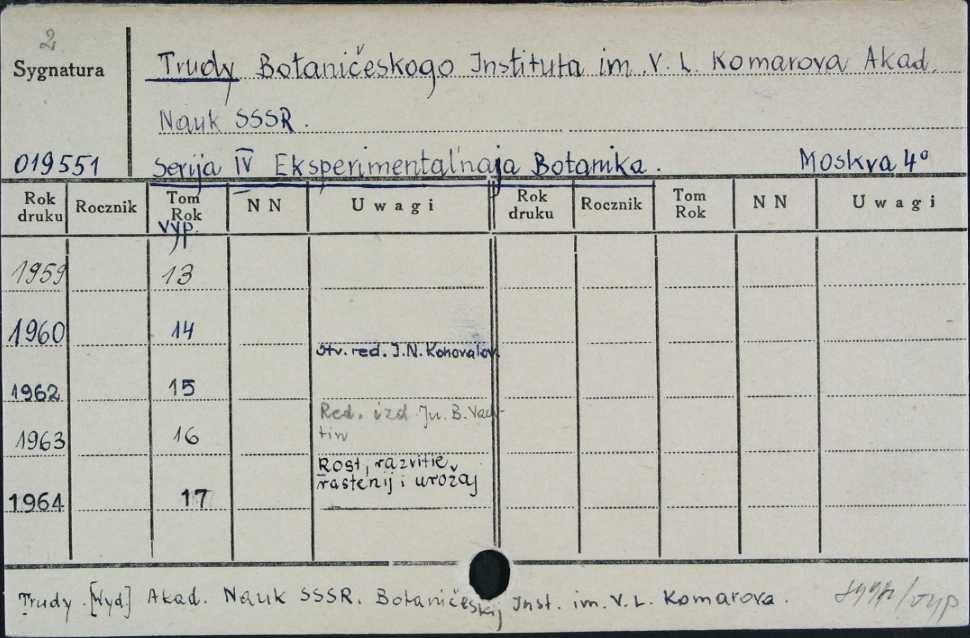 2
Sygnatura
Trudy Botaničeskogo Instituta im. V. L. Komarova Akad.
Nauk SSSR.
019551
Serija IV Eksperimental'naja Botanika.
Moskva 4°
Rok druku Rocznik Tom Rok N N Uwagi Rok druku Rocznik Tom Rok N N Uwagi
vyp.
1959 13
1960 14
Otv. red. J. N. Konovalov.
1962 15
Red. izd Ju. B.
1963 16
Rost, razvitie
rastenij i urožaj
1964 17
Trudy. [Wyd] Akad. Nauk SSSR. Botaničeskij Inst. im. V. L. Komarova.